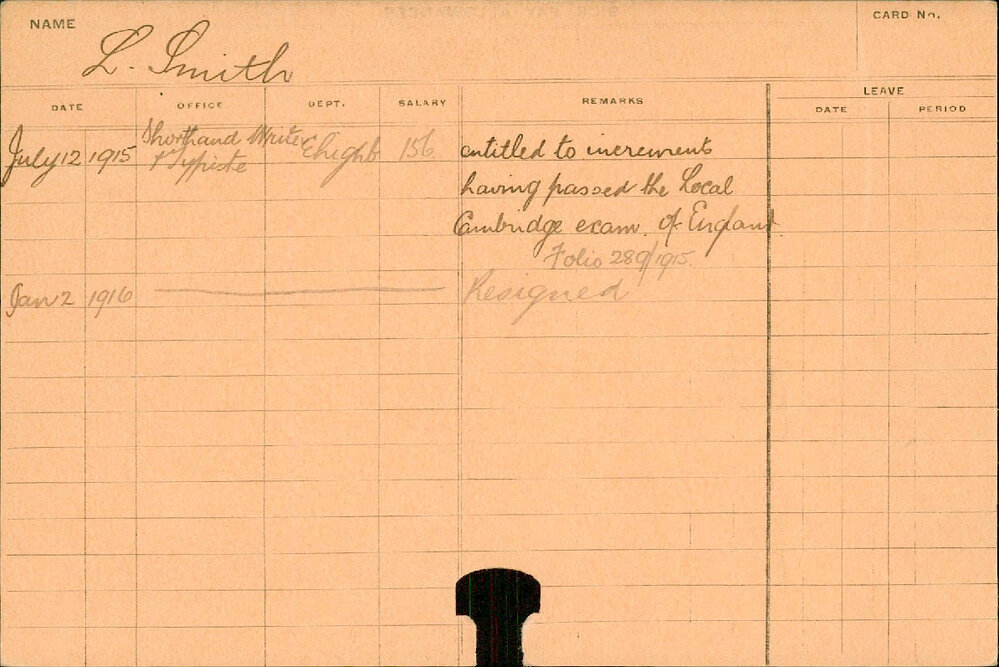 NAME
L. Smith
CARD No.
DATE OFFICE DEPT. SALARY REMARKS LEAVE
DATE PERIOD
July 12 1915 Shorthand Writer 156 entitled to increment
& Typiste
having passed the Local
Cambridge exam. of England
Folio 289/1915
Jan 2 1916 Resigned